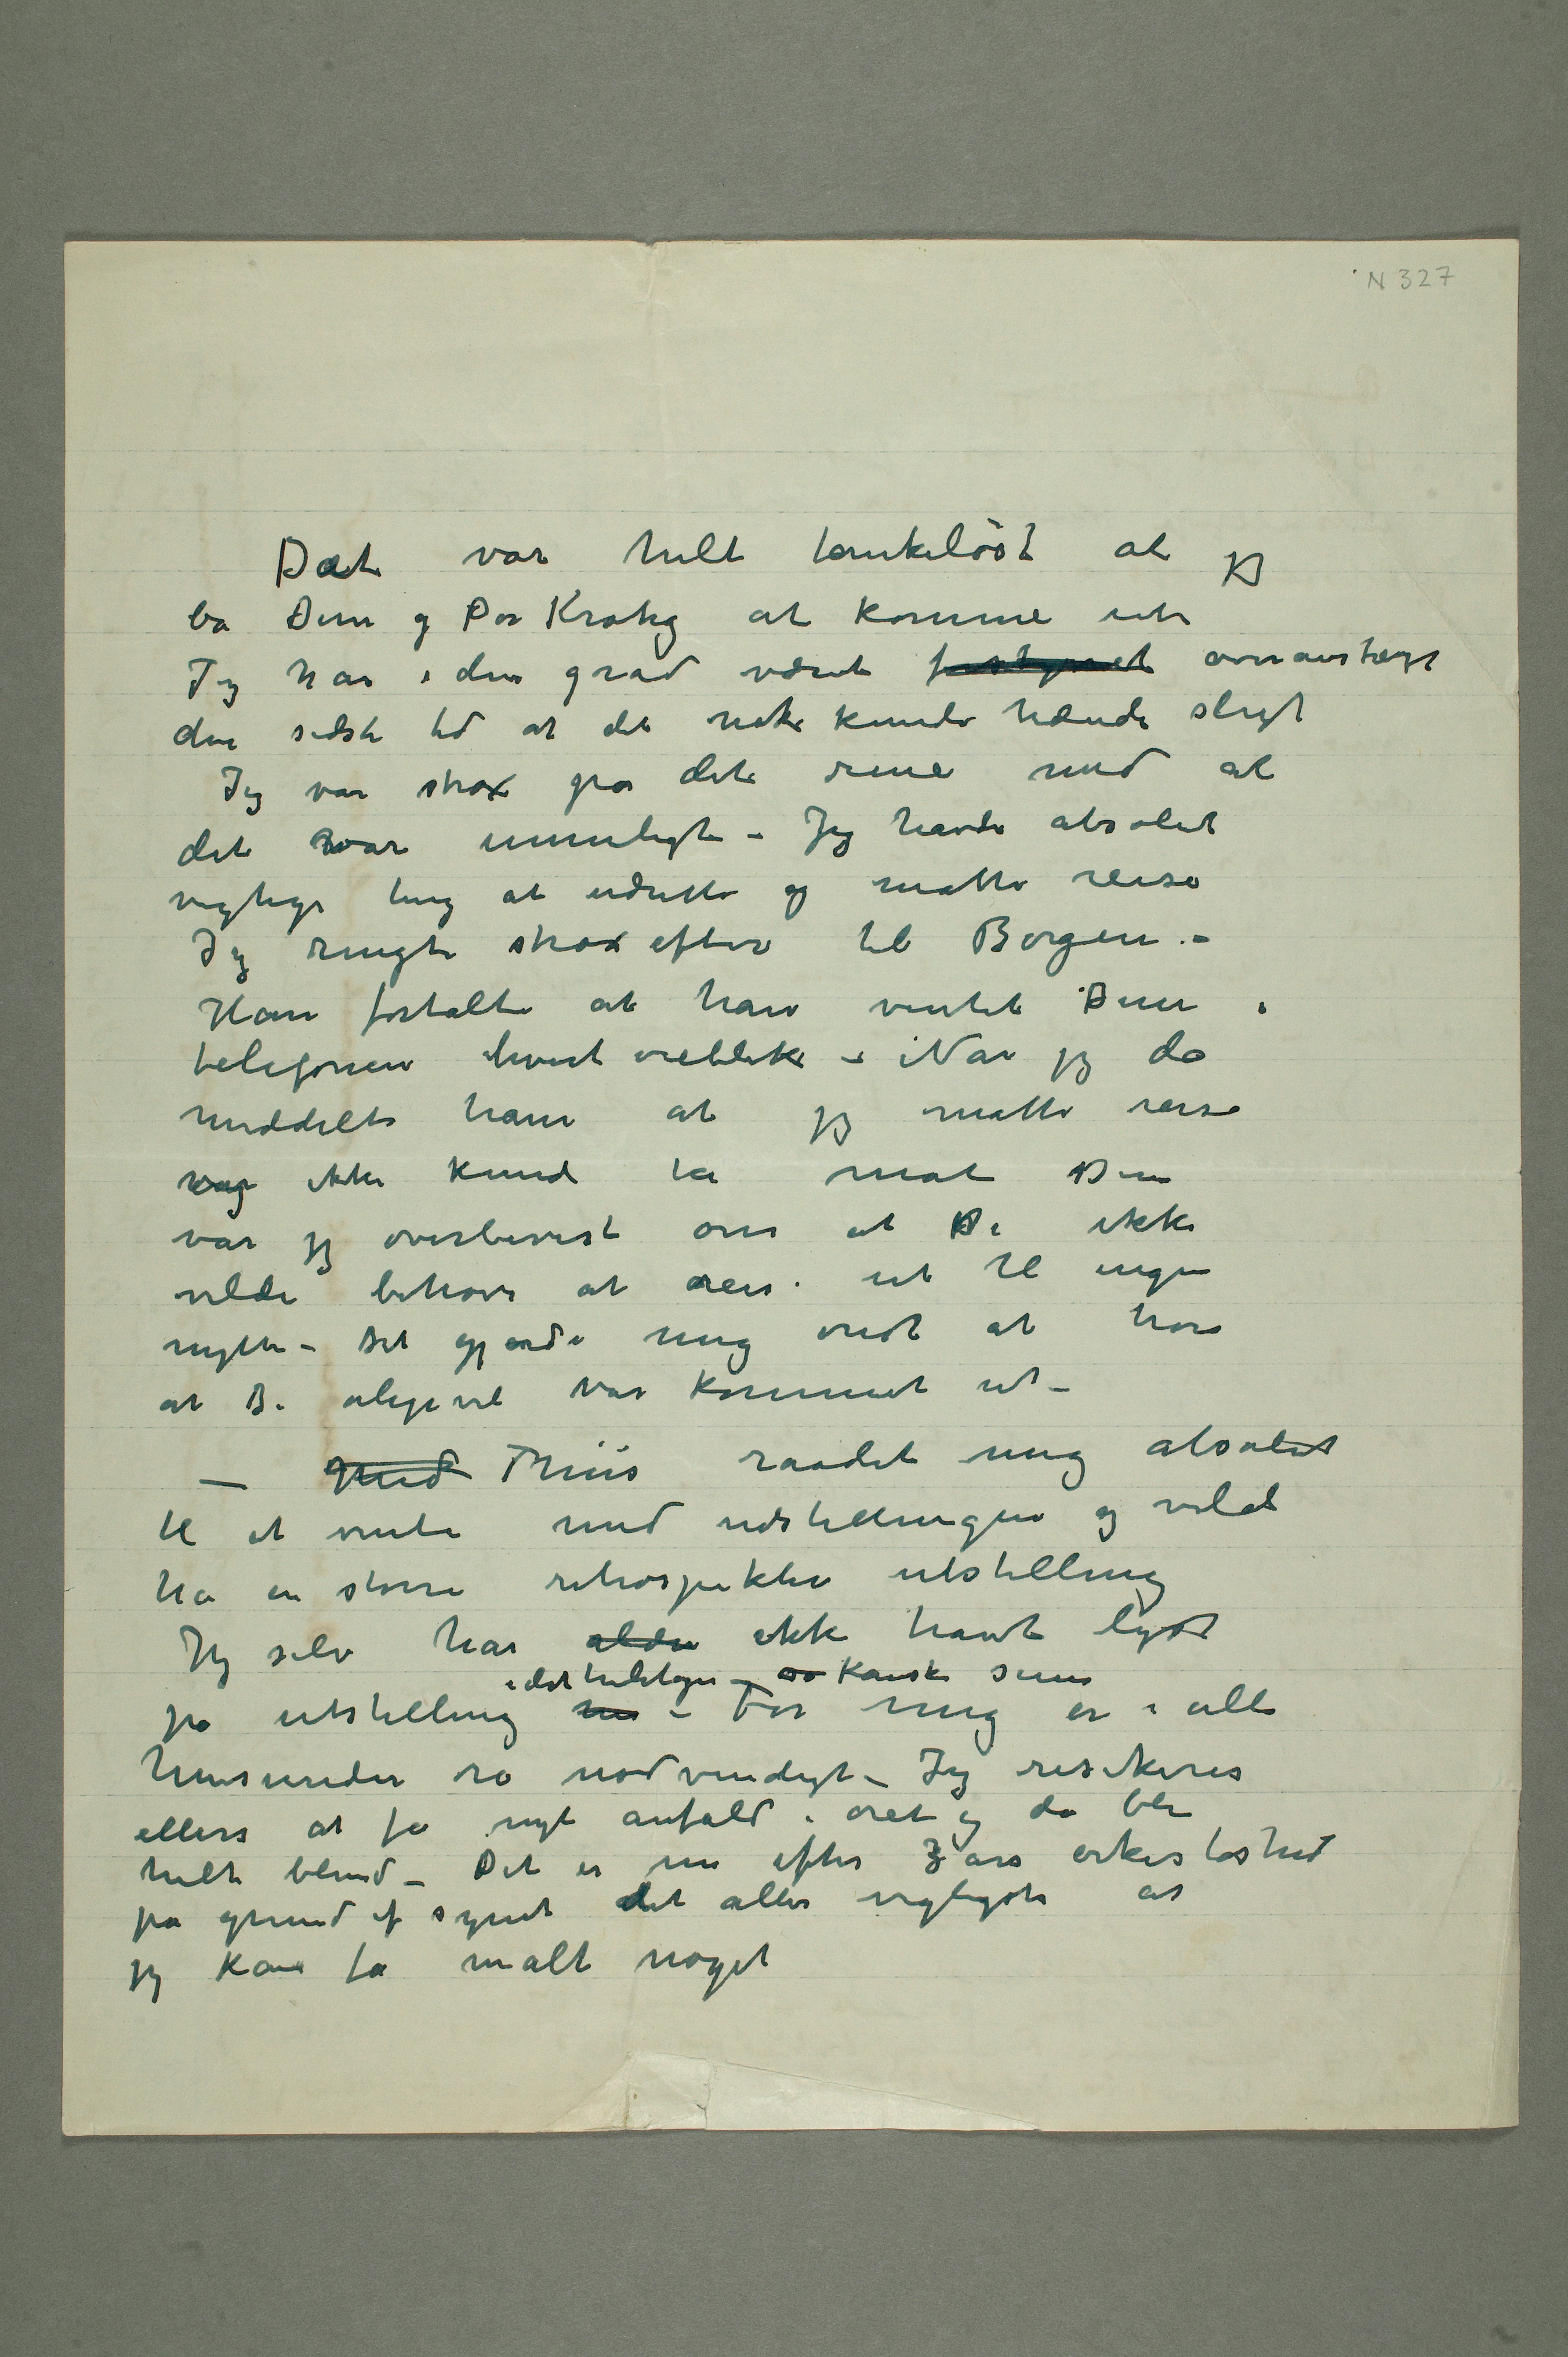 N 327
Det var helt tankeløst at jeg
ba Dem og Per Krohg at komme ut
Jeg har i den grad været forstyrret overanstrængt
den sidste tid at det nok kunde hænde sligt
Jeg var strax på det rene med at
det var umuligt – Jeg havde absolut
vigtige ting at udrette og matte reise
Jeg ringte strax efter til Borgen. –
Han fortalte at han ventet Dem i
telefonen hvert øieblik – Når jeg da
meddelte ham at jeg matte reise
og ikke kunde ta mot Dem
var jeg overbevist om at De ikke
vilde behøve at reise ut til ingen
nytte – Det gjorde mig ondt at høre
at De aligevel var kommet ut –
– Med Thiis raadet mig absolut
til at vente med udstillingen og vilde
ha en større retrospektiv utstilling
Jeg selv har aldri ikke havt lyst
i det hele tage – så kanske senere
på utstilling nu – For mig er i alle
henseender ro nødvendigt – Jeg risikerer
ellers at få nyt anfald i øiet og da bli
helt blind – Det er nu efter 3 års ørkesløshed
på grund af synet det aller vigtigste at
jeg kan få malt noget